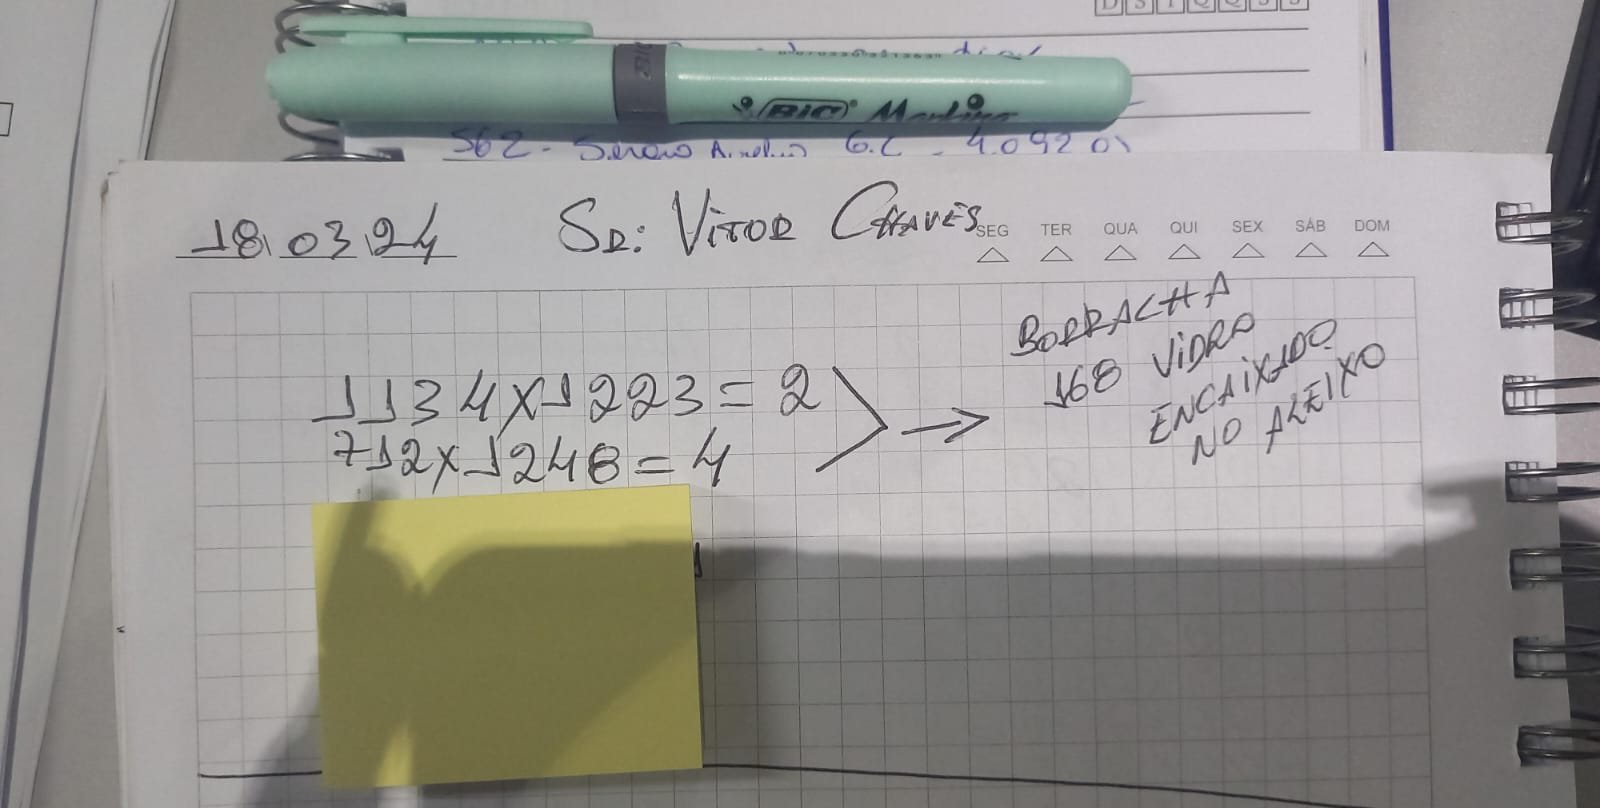 D S T Q Q S S
BIC
BIC Marking
562 - 6.C - 4.092 01
18 03 24 Sr: Vitor Chaves
SEG TER QUA QUI SEX SÁB DOM
1134x1223=2
712x1248=4
BORRACHA
168 VIDRO
ENCAIXADO
NO ALEIXO